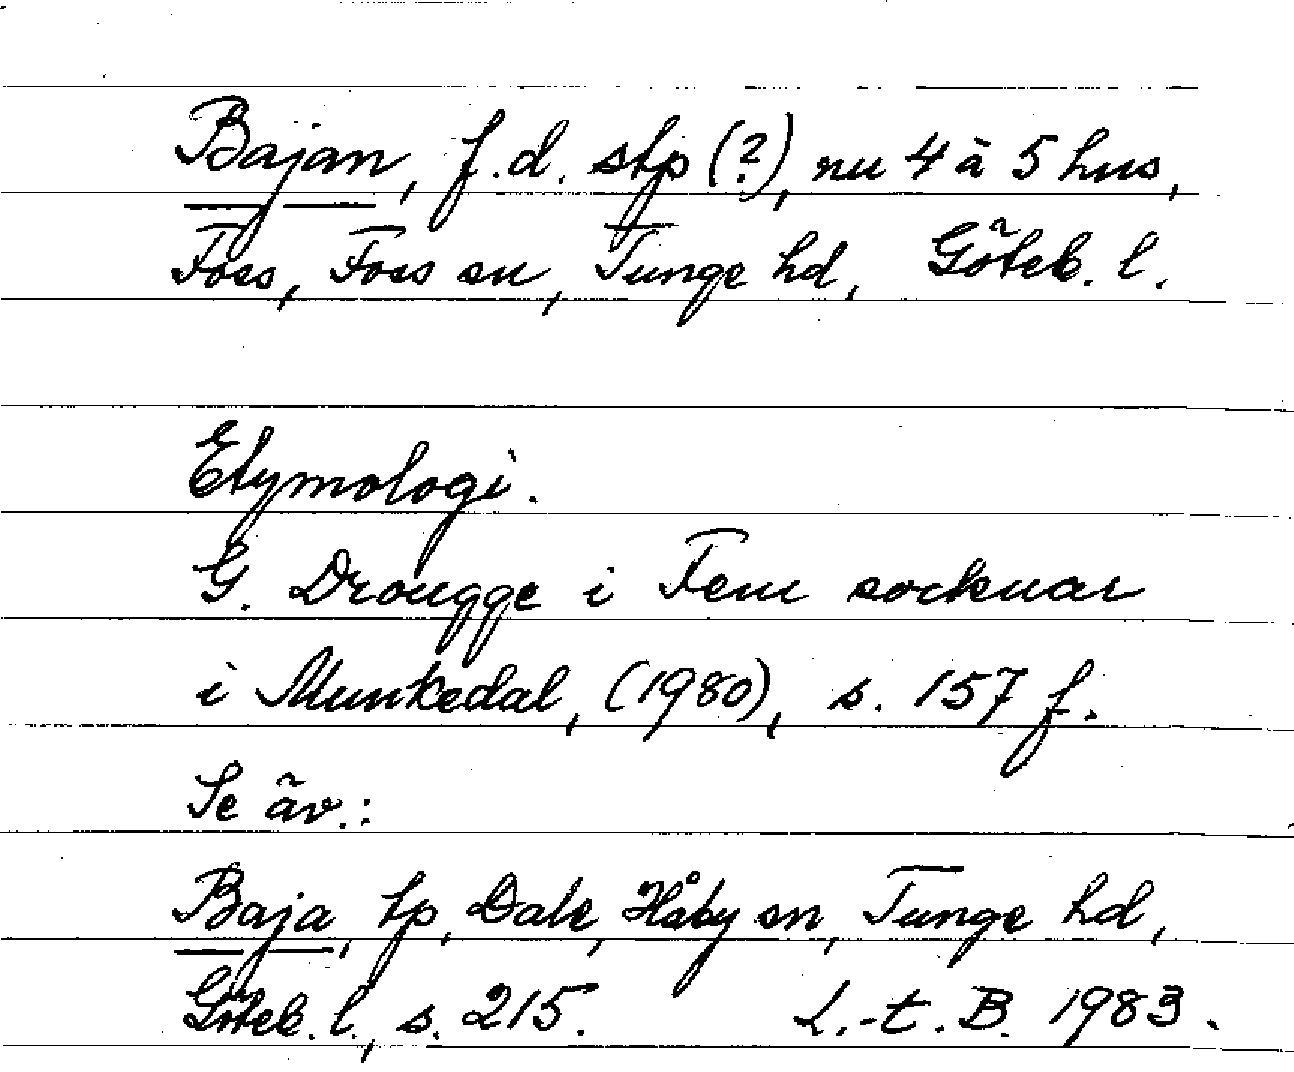 Bajan, f.d. stp (?), nu 4 à 5 hus,
Foss, Foss sn, Tunge hd, Göteb. l.
Etymologi.
G. Drougge i Fem socknar
i Munkedal, (1980), s. 157 f.
Se äv.:
Baja, tp, Dale, Håby sn, Tunge hd,
Göteb. l., s. 215. L.-t. B. 1983.